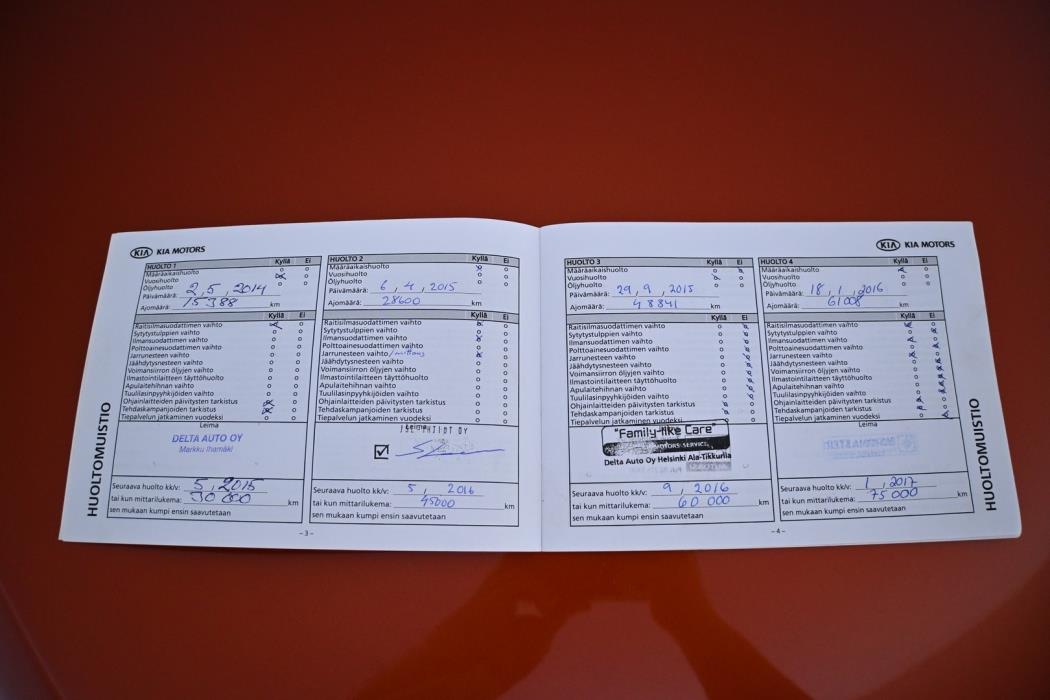 KIA KIA MOTORS
HUOLTO 1 Kyllä Ei
Määräaikaishuolto
Vuosihuolto
Öljyhuolto
Päivämäärä: 2,5, 2014
Ajomäärä: 15388 km
Kyllä Ei
Raitisilmasuodattimen vaihto
Sytytystulppien vaihto
Ilmansuodattimen vaihto
Polttoainesuodattimen vaihto
Jarrunesteen vaihto
Jäähdytysnesteen vaihto
Voimansiirron öljyjen vaihto
Ilmastointilaitteen täyttöhuolto
Apulaitehihnan vaihto
Tuulilasinpyyhkijöiden vaihto
Ohjainlaitteiden päivitysten tarkistus
Tehdaskampanjoiden tarkistus
Tiepalvelun jatkaminen vuodeksi
Leima
DELTA AUTO OY
Markku Ihamäki
Seuraava huolto kk/v: 5, 2015
tai kun mittarilukema: 30 000 km
sen mukaan kumpi ensin saavutetaan
HUOLTOMUISTIO
HUOLTO 2 Kyllä Ei
Määräaikaishuolto
Vuosihuolto
Öljyhuolto
Päivämäärä: 6, 4, 2015
Ajomäärä: 28600 km
Kyllä Ei
Raitisilmasuodattimen vaihto
Sytytystulppien vaihto
Ilmansuodattimen vaihto
Polttoainesuodattimen vaihto
Jarrunesteen vaihto /mittaus
Jäähdytysnesteen vaihto
Voimansiirron öljyjen vaihto
Ilmastointilaitteen täyttöhuolto
Apulaitehihnan vaihto
Tuulilasinpyyhkijöiden vaihto
Ohjainlaitteiden päivitysten tarkistus
Tehdaskampanjoiden tarkistus
Tiepalvelun jatkaminen vuodeksi
Leima
OY
Seuraava huolto kk/v: 5, 2016
tai kun mittarilukema: 45000 km
sen mukaan kumpi ensin saavutetaan
-3-
KIA KIA MOTORS
HUOLTO 3 Kyllä Ei
Määräaikaishuolto
Vuosihuolto
Öljyhuolto
Päivämäärä: 29, 9, 2015
Ajomäärä: 48841 km
Kyllä Ei
Raitisilmasuodattimen vaihto
Sytytystulppien vaihto
Ilmansuodattimen vaihto
Polttoainesuodattimen vaihto
Jarrunesteen vaihto
Jäähdytysnesteen vaihto
Voimansiirron öljyjen vaihto
Ilmastointilaitteen täyttöhuolto
Apulaitehihnan vaihto
Tuulilasinpyyhkijöiden vaihto
Ohjainlaitteiden päivitysten tarkistus
Tehdaskampanjoiden tarkistus
Tiepalvelun jatkaminen vuodeksi
"Family-like Care"
MOTORS SERVICE
Delta Auto Oy Helsinki Ala-Tikkurila
Seuraava huolto kk/v: 9, 2016
tai kun mittarilukema: 60 000 km
sen mukaan kumpi ensin saavutetaan
HUOLTO 4 Kyllä Ei
Määräaikaishuolto
Vuosihuolto
Öljyhuolto
Päivämäärä: 18, 1, 2016
Ajomäärä: 61008 km
Kyllä Ei
Raitisilmasuodattimen vaihto
Sytytystulppien vaihto
Ilmansuodattimen vaihto
Polttoainesuodattimen vaihto
Jarrunesteen vaihto
Jäähdytysnesteen vaihto
Voimansiirron öljyjen vaihto
Ilmastointilaitteen täyttöhuolto
Apulaitehihnan vaihto
Tuulilasinpyyhkijöiden vaihto
Ohjainlaitteiden päivitysten tarkistus
Tehdaskampanjoiden tarkistus
Tiepalvelun jatkaminen vuodeksi
Leima
Seuraava huolto kk/v: 1, 2017
tai kun mittarilukema: 75 000 km
sen mukaan kumpi ensin saavutetaan
-4-
HUOLTOMUISTIO